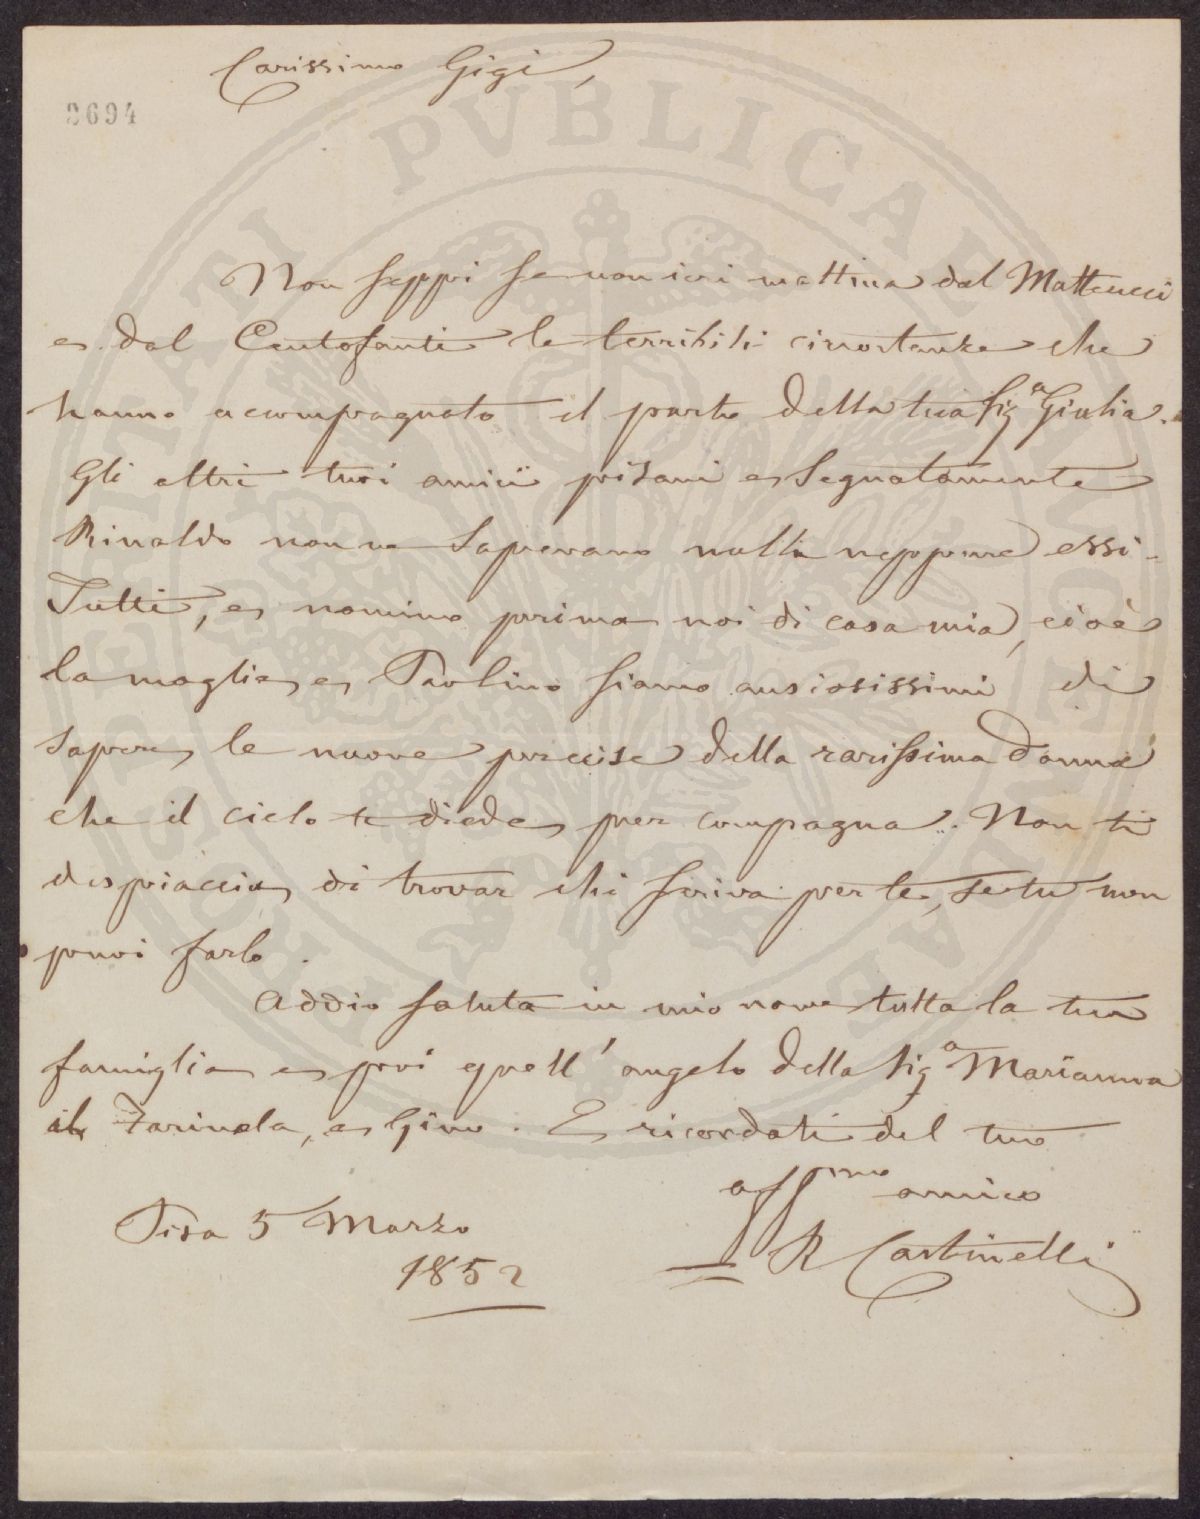 Carissimo Gigi,
2694
Non seppi se non ieri mattina dal Matteucci
e dal Centofanti le terribili circostanze che
hanno accompagnato il parto della tua Sig.a Giulia.
Gli altri tuoi amici pisani e segnatamente
Rinaldo non ne sapevano nulla neppure essi.
Tutti, e nomino prima noi di casa mia, cioè
la moglie e Paolino siamo ansiosissimi di
sapere le nuove precise della rarissima donna
che il cielo te diede per compagna. Non ti
dispiaccia di trovar chi scriva per te, se tu non
puoi farlo.
Addio saluta in mio nome tutta la tua
famiglia e poi quell' angelo della Sig.a Marianna
il Farinola, e Gino. E ricordati del tuo
aff.mo amico
Pisa 5 Marzo
1852
R Castinelli